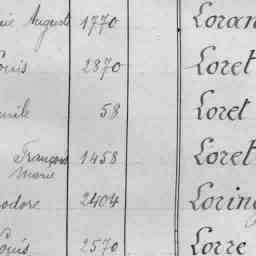 Auguste 1770 Loran
Louis 2870 Loret
58 Loret
François Marie 1458 Loret
odore 2404 Loring
Louis 2570 Lorre